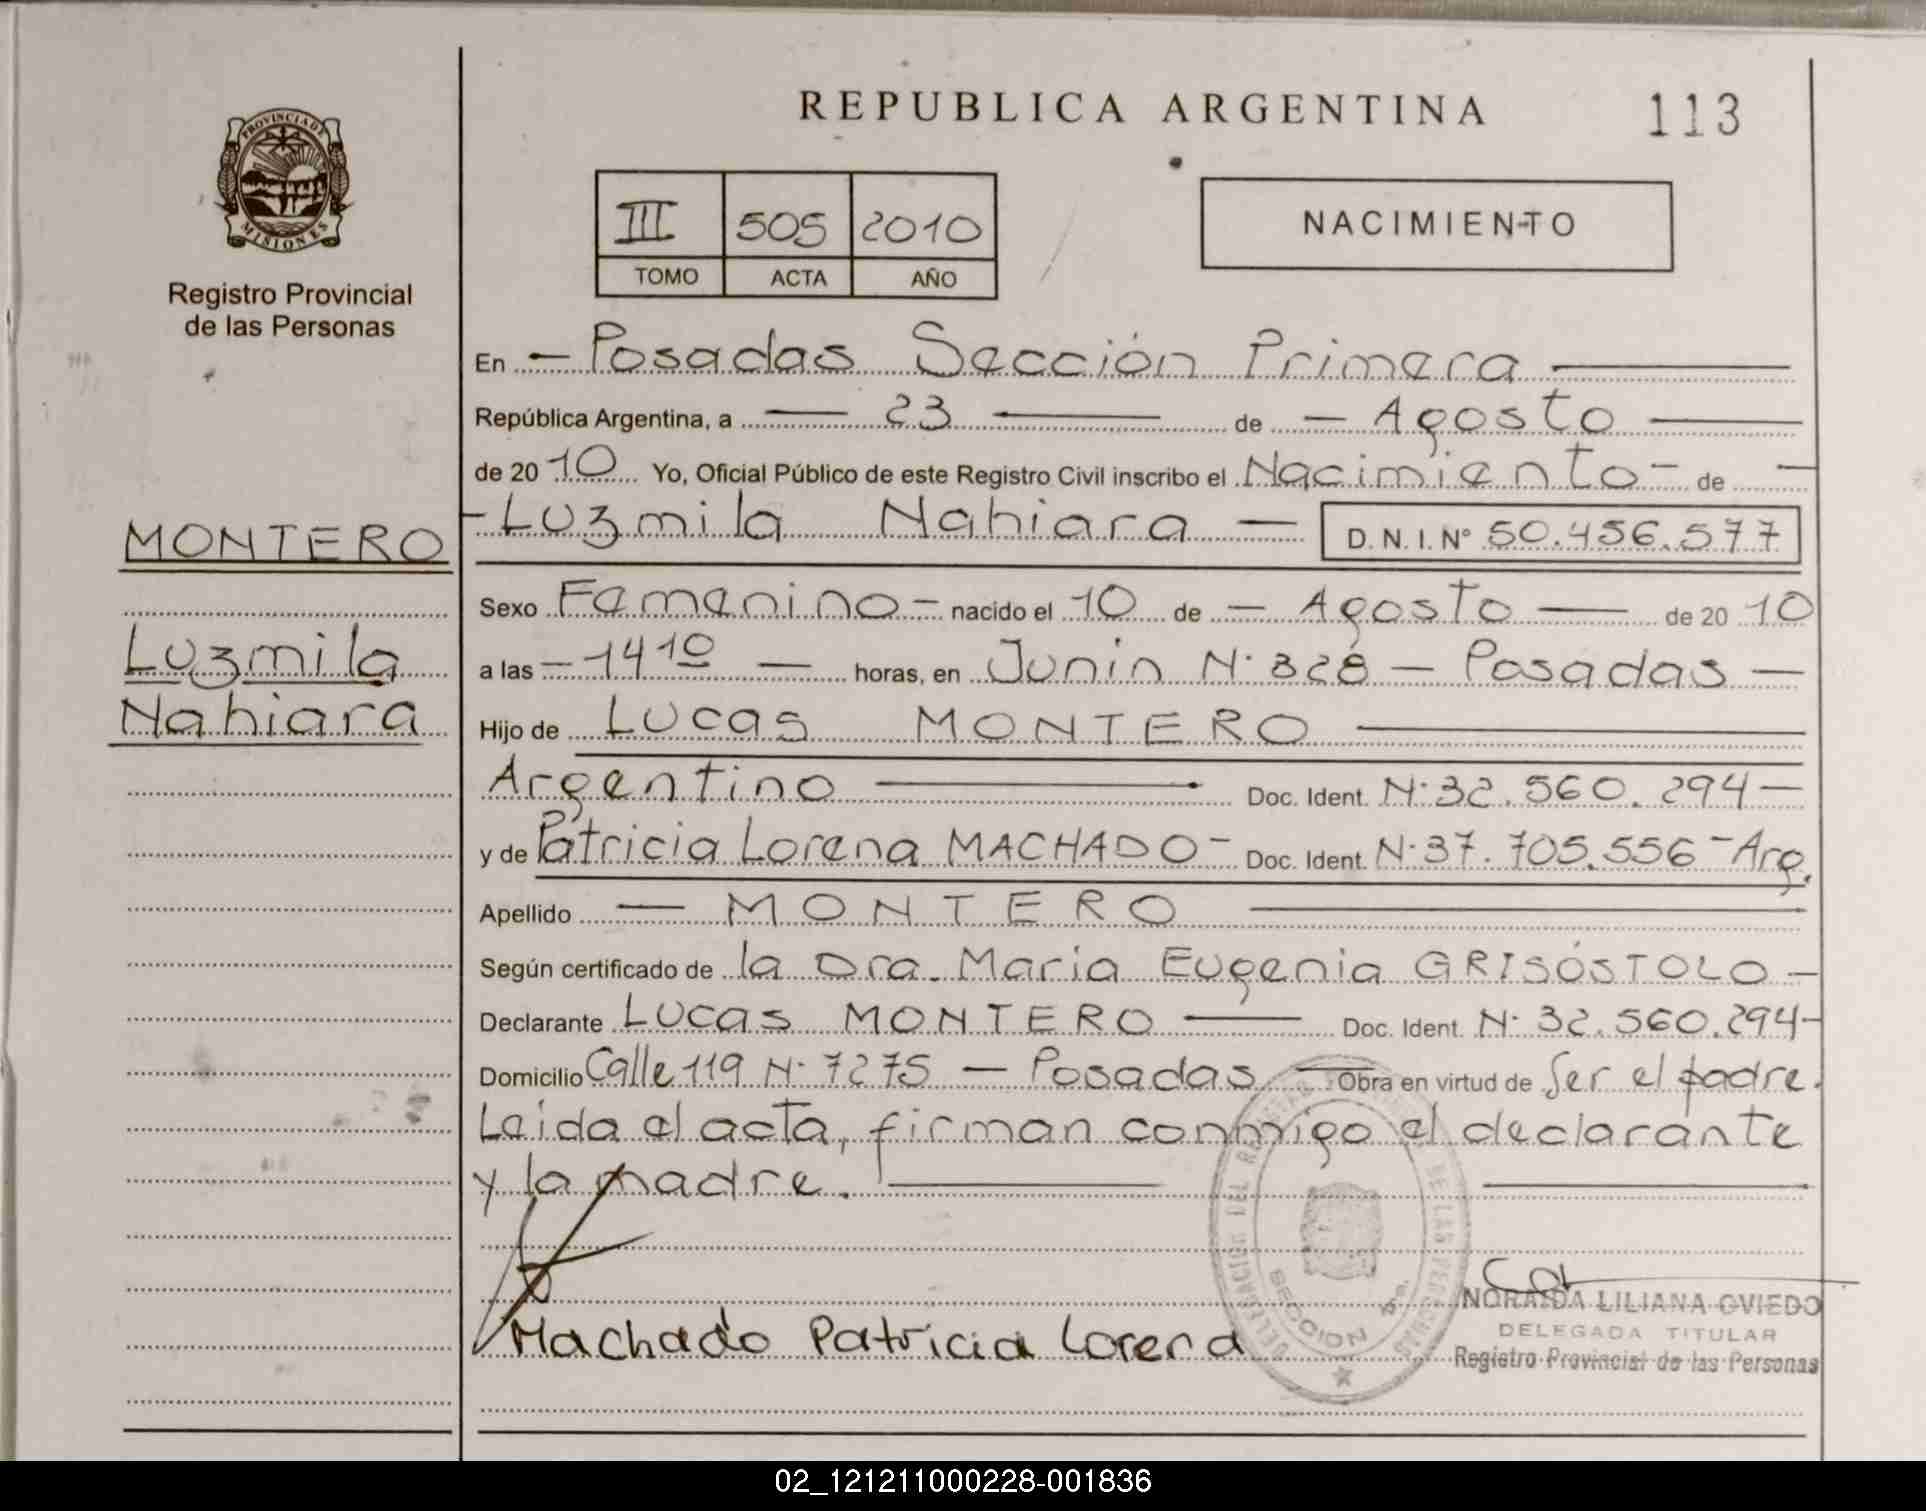 REPUBLICA ARGENTINA
113
PROVINCIA DE
MISIONES
Registro Provincial
de las Personas
III 505 2010
TOMO ACTA AÑO
NACIMIENTO
En – Posadas Sección Primera —
República Argentina, a — 23 — de – Agosto —
de 20 10 Yo, Oficial Público de este Registro Civil inscribo el Nacimiento – de —
– Luzmila Nahiara — D. N. I. Nº 50.456.577
MONTERO
Luzmila
Nahiara
Sexo Femenino – nacido el 10 de – Agosto — de 20 10
a las – 14 10 — horas, en Junin N· 328 – Posadas —
Hijo de Lucas MONTERO —
Argentino — Doc. Ident. N· 32.560.294 —
y de Patricia Lorena MACHADO – Doc. Ident. N· 37.705.556 – Arg.
Apellido — MONTERO —
Según certificado de la Dra. Maria Eugenia GRISÓSTOLO –
Declarante Lucas MONTERO — Doc. Ident. N· 32.560.294 –
Domicilio Calle 119 N· 7275 — Posadas — Obra en virtud de Ser el padre.
Leida el acta, firman conmigo el declarante
y la madre. —
Machado Patricia Lorena
DELEGACION DEL REGISTRO DE LAS PERSONAS
SECCION
NORAIDA LILIANA OVIEDO
DELEGADA TITULAR
Registro Provincial de las Personas
02_121211000228-001836